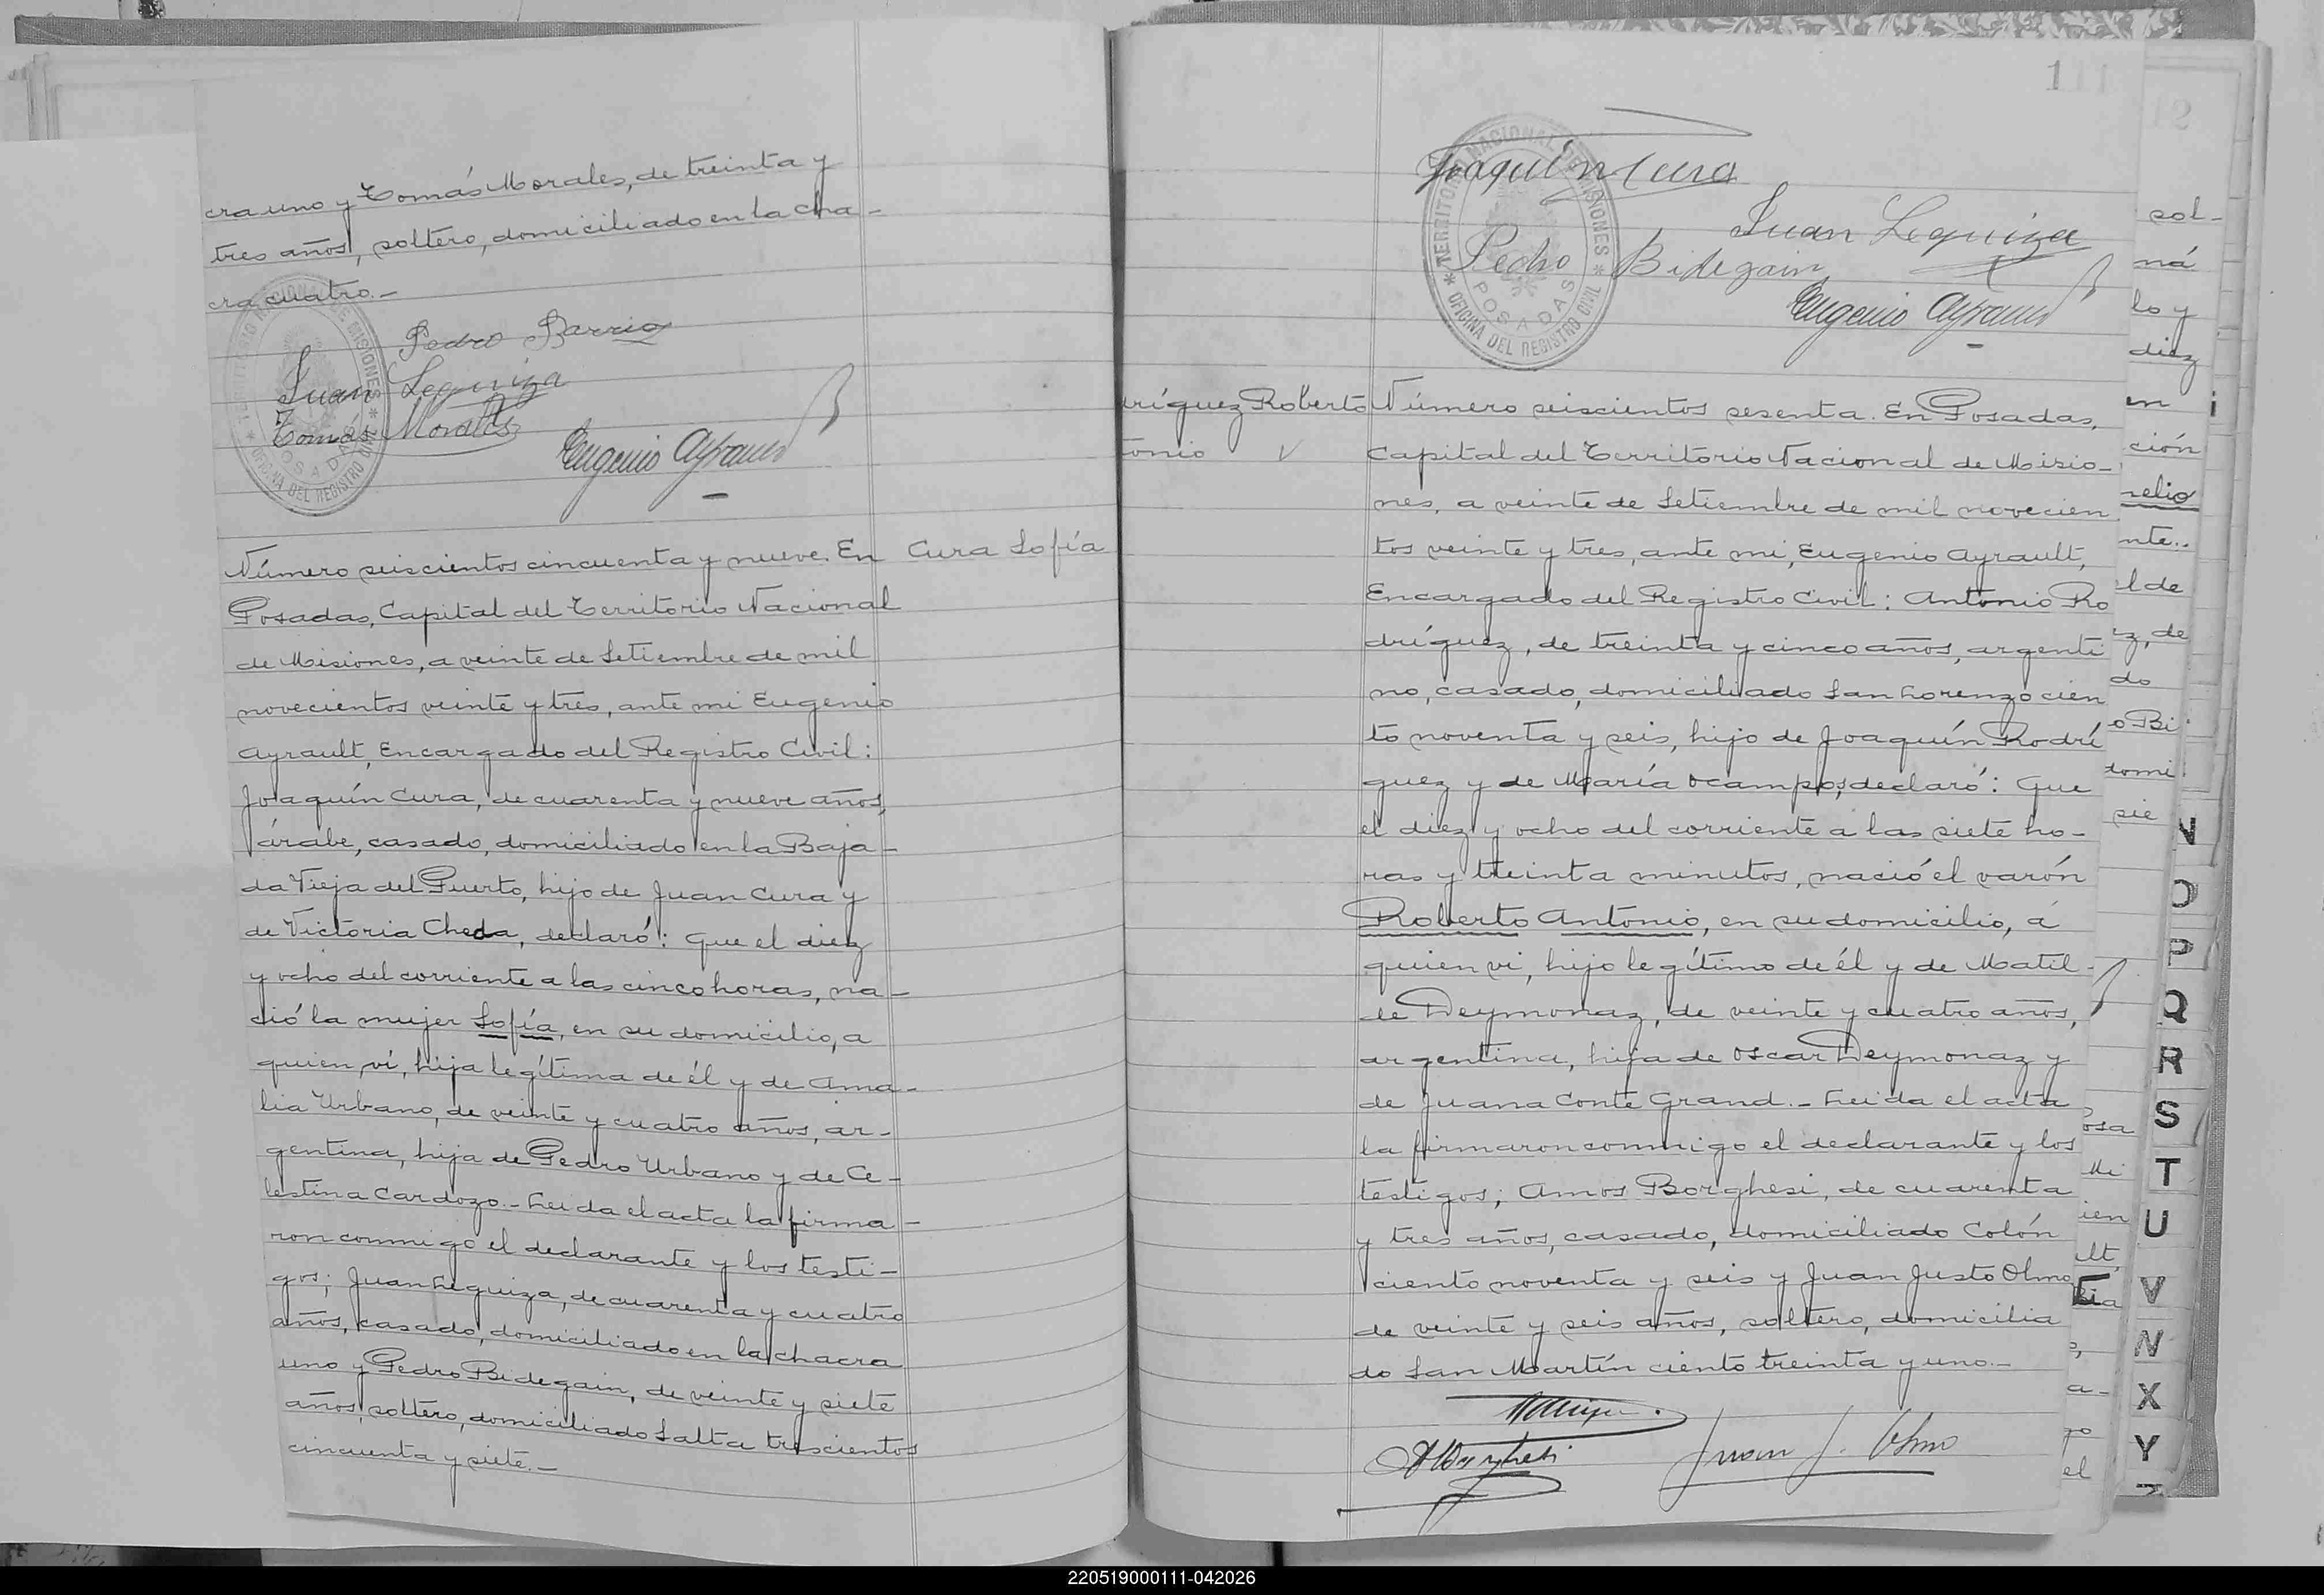 cra uno y Tomás Morales, de treinta y
tres años, soltero, domiciliado en la cha-
cra cuatro.-
TERRITORIO NACIONAL DE MISIONES
POSADAS
OFICINA DEL REGISTRO CIVIL
Pedro Barrios
Juan Leguiza
Tomás Morales
Eugenio Ayrault
Número seiscientos cincuenta y nueve. En
Cura Sofía
Posadas, Capital del Territorio Nacional
de Misiones, a veinte de Setiembre de mil
novecientos veinte y tres, ante mi Eugenio
Ayrault, Encargado del Registro Civil:
Joaquín Cura, de cuarenta y nueve años,
árabe, casado, domiciliado en la Baja-
da Vieja del Puerto, hijo de Juan Cura y
de Victoria Cheda, declaró: Que el diez
y ocho del corriente a las cinco horas, na-
ció la mujer Sofía, en su domicilio, a
quien vi, hija legítima de él y de Ama-
lia Urbano, de veinte y cuatro años, ar-
gentina, hija de Pedro Urbano y de Ce-
lestina Cardozo.- Leida el acta la firma-
ron conmigo el declarante y los testi-
gos; Juan Leguiza, de cuarenta y cuatro
años, casado, domiciliado en la chacra
uno y Pedro Bidegain, de veinte y siete
años, soltero, domiciliado Salta trescientos
cincuenta y siete.-
111
TERRITORIO NACIONAL DE MISIONES
POSADAS
OFICINA DEL REGISTRO CIVIL
Joaquín Cura
Juan Leguiza
Pedro Bidegain
Eugenio Ayrault
ríguez Roberto
tonio
Número seiscientos sesenta. En Posadas,
Capital del Territorio Nacional de Misio-
nes, a veinte de Setiembre de mil novecien
tos veinte y tres, ante mi, Eugenio Ayrault,
Encargado del Registro Civil: Antonio Ro
dríguez, de treinta y cinco años, argenti
no, casado, domiciliado San Lorenzo cien
to noventa y seis, hijo de Joaquín Rodrí
guez y de María Ocampos, declaró: Que
el diez y ocho del corriente a las siete ho-
ras y treinta minutos, nació el varón
Roberto Antonio, en su domicilio, á
quien vi, hijo legítimo de él y de Matil-
de Deymonaz, de veinte y cuatro años,
argentina, hija de Oscar Deymonaz y
de Juana Conte Grand.- Leida el acta
la firmaron conmigo el declarante y los
testigos; Amos Borghesi, de cuarenta
y tres años, casado, domiciliado Colón
ciento noventa y seis y Juan Justo Olmo
de veinte y seis años, soltero, domicilia
do San Martín ciento treinta y uno.-
ABorghesi
Juan J. Olmo
12
sol-
ná
lo y
diez
en
ción
relio
nte..
l de
ez, de
do
o Bi
domi
sie
osa
Mi
ien
ult,
a-
go
el
N
O
P
Q
R
S
T
U
V
N
X
Y
Z
220519000111-042026